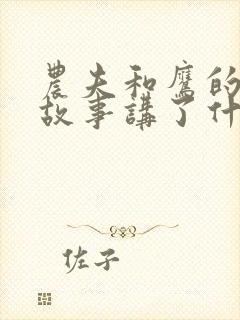 農夫和鷹的
故事講了什
佐子